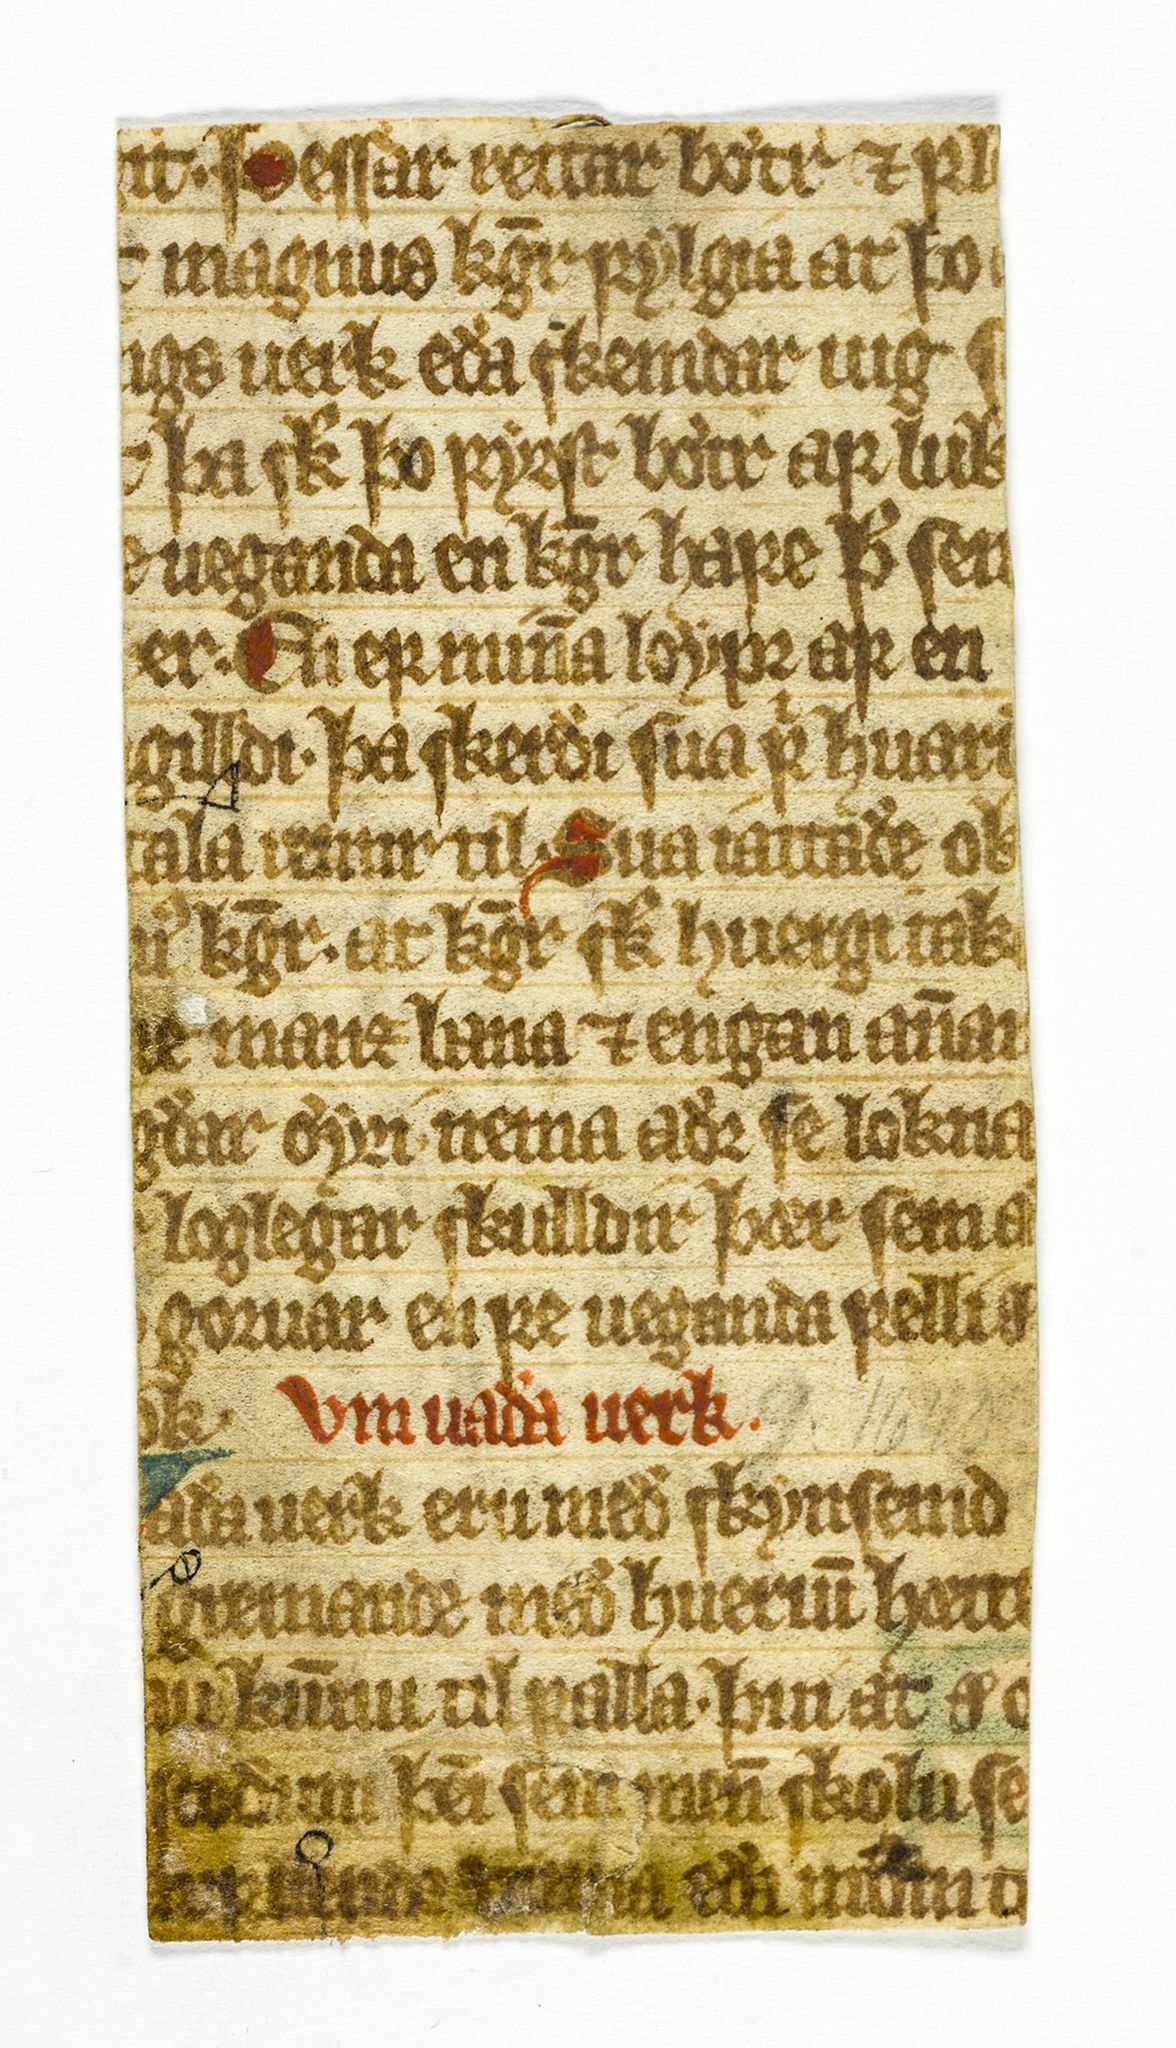 þessar rettar bǿtr ⁊ fl
magnus kg̅r fylgia at þo
igs uerk eða skemdar uig
þa sk̅ þo fyrst bǿtr af luk
ueganda en kg̅r hafe þ̅ sem
er. En ef minn̅a løypr af en
gilldi. þa skerði sua f huari
tala rettir til. Sua iattaðe ok
kg̅r. at kg̅r sk̅ huergi tak
manz bana ⁊ engan an̅an
gðar øyri nema aðr se lokna
loglegar skulldir þær sem a
goruar en fe ueganda felli s
ok.
Vm uaða uerk.
aða uerk eru með skynsemd
gremande með huerium̅ hætte
kun̅u til falla. þui at s
þei̅ sem men̅ skolu se
eða